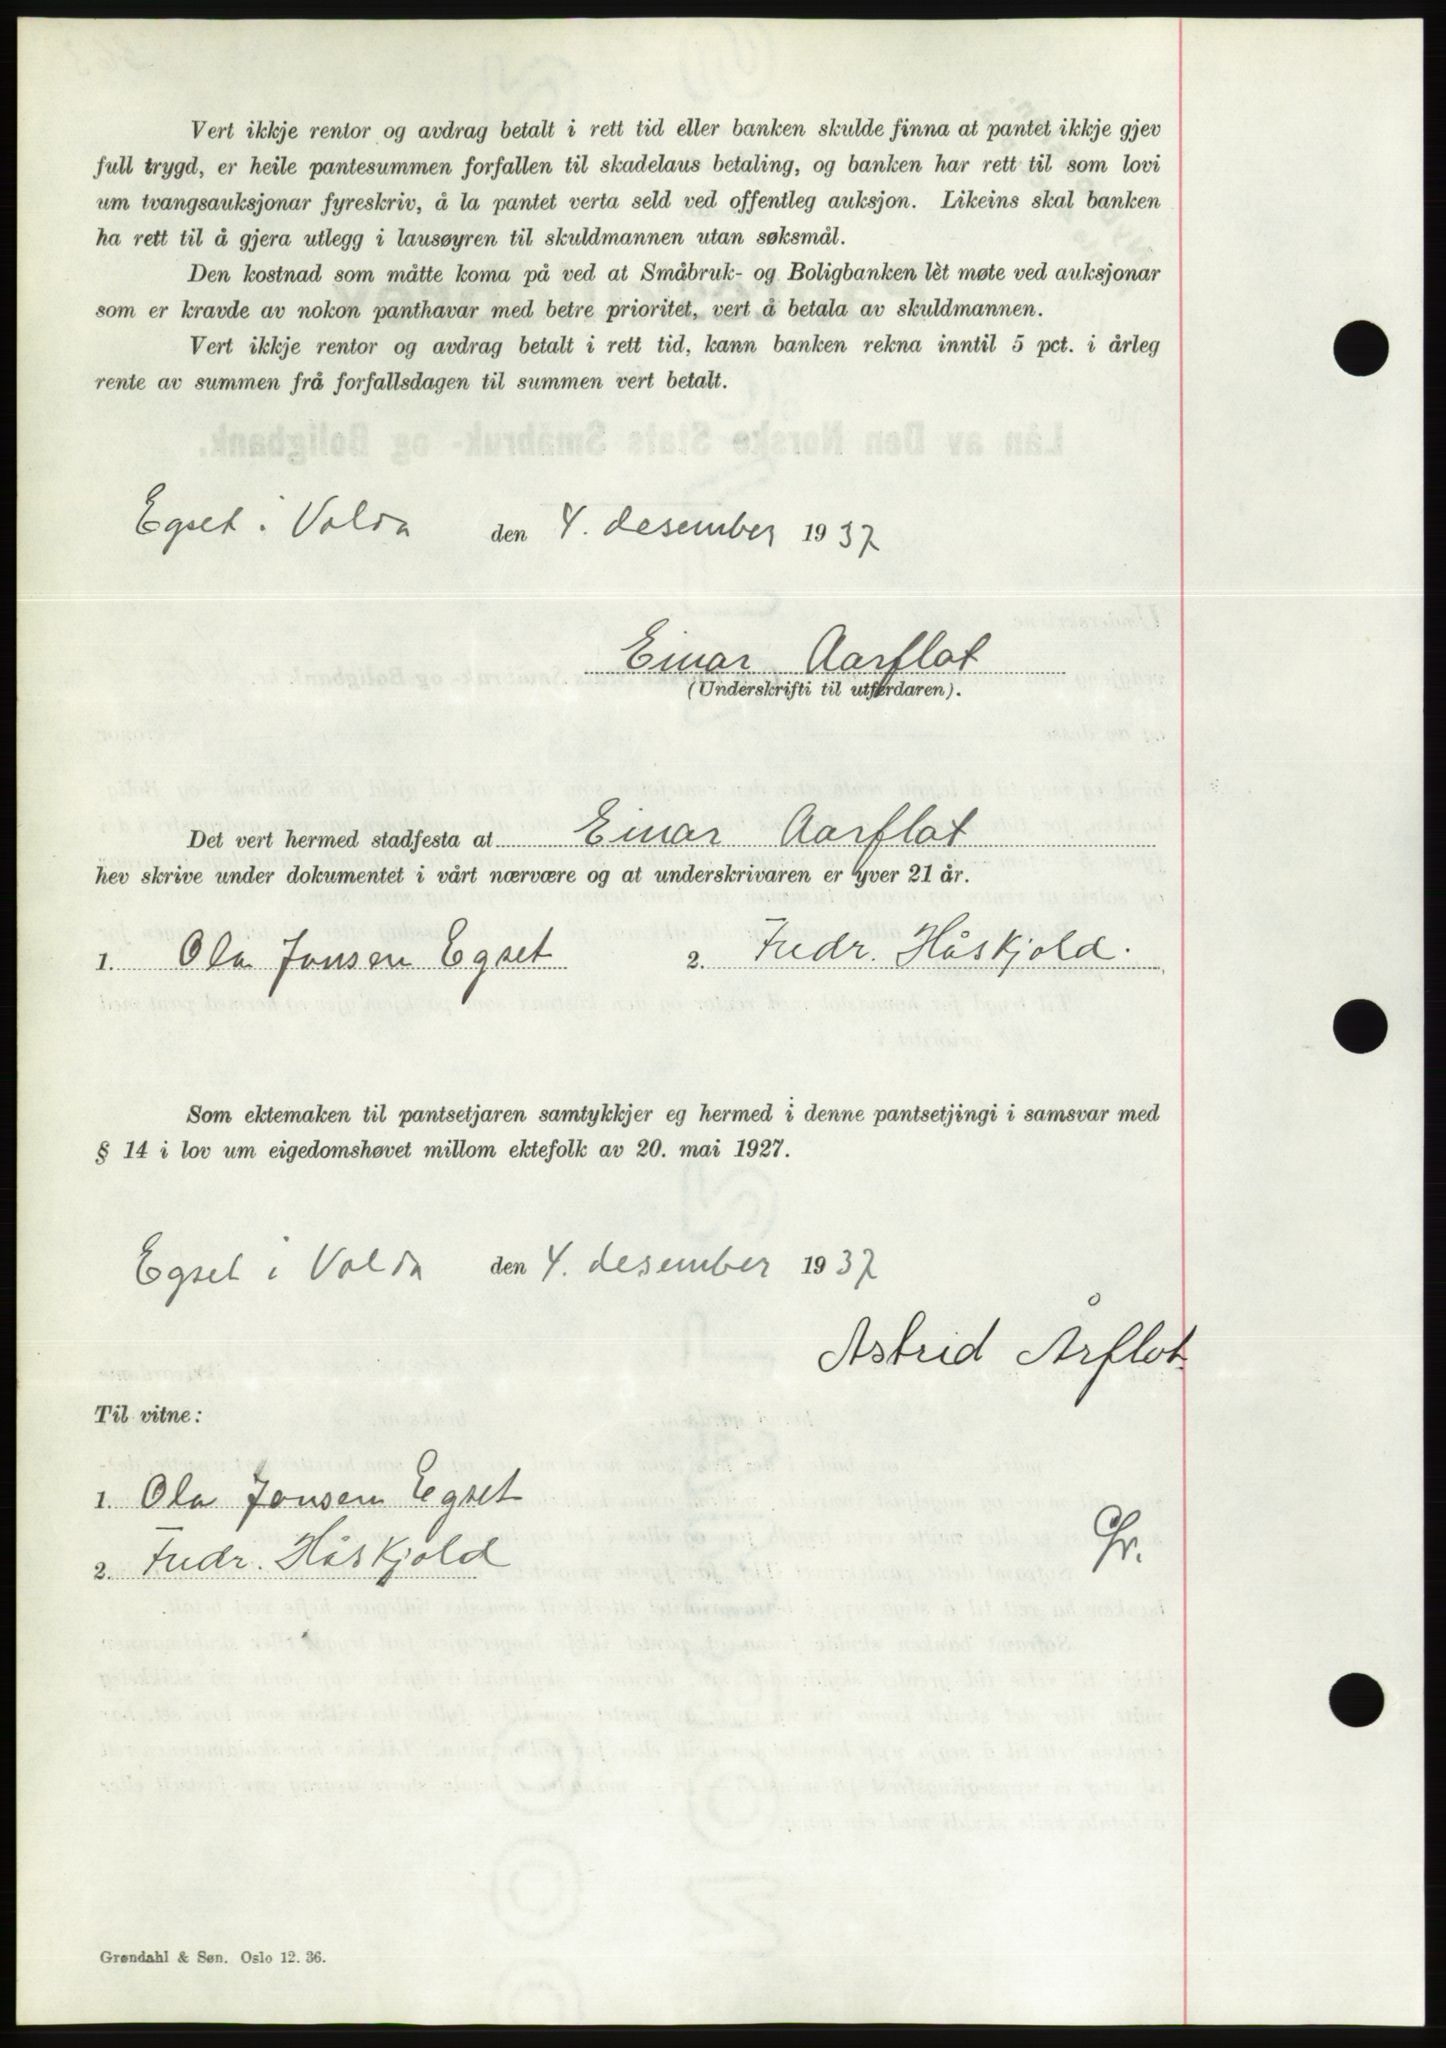 Vert ikkje rentor og avdrag betalt i rett tid eller banken skulde finna at pantet ikkje gjev
full trygd, er heile pantesummen forfallen til skadelaus betaling, og banken har rett til som lovi
um tvangsauksjonar fyreskriv, å la pantet verta seld ved offentleg auksjon. Likeins skal banken
ha rett til å gjera utlegg i lausøyren til skuldmannen utan søksmål.
Den kostnad som måtte koma på ved at Småbruk- og Boligbanken lèt møte ved auksjonar
som er kravde av nokon panthavar med betre prioritet, vert å betala av skuldmannen.
Vert ikkje rentor og avdrag betalt i rett tid, kann banken rekna inntil 5 pct. i årleg
rente av summen frå forfallsdagen til summen vert betalt.
Egset i Volda den 4. desember 1937
Einar Aarflot
(Underskrifti til utferdaren).
Det vert hermed stadfesta at Einar Aarflot
hev skrive under dokumentet i vårt nærvære og at underskrivaren er yver 21 år.
1. Ola Jonsen Egset 2. Fredr. Håskjold.
Som ektemaken til pantsetjaren samtykkjer eg hermed i denne pantsetjingi i samsvar med
§ 14 i lov um eigedomshøvet millom ektefolk av 20. mai 1927.
Egset i Volda den 4. desember 1937
Astrid Årflot
Til vitne:
1. Ola Jonsen Egset
2. Fredr. Håskjold
Grøndahl & Søn. Oslo 12. 36.